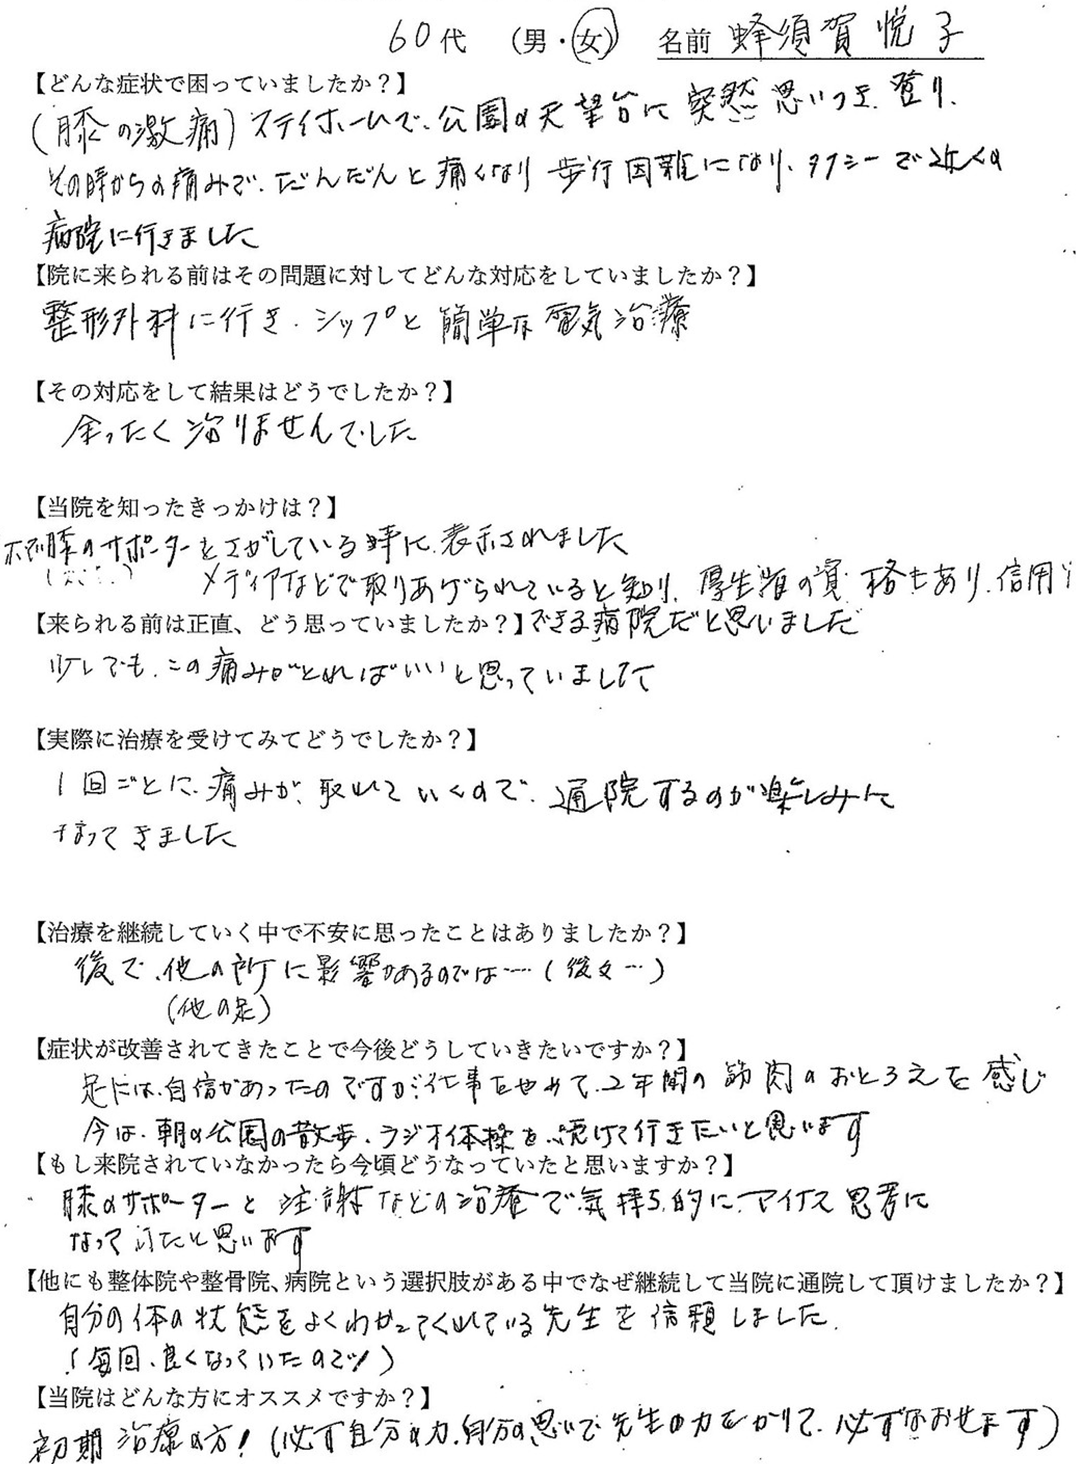 60代 (男・女) 名前 蜂須賀 悦子
【どんな症状で困っていましたか？】
(膝の激痛) ステイホームで、公園の天望台に 突然 思いつき、登り、
その時からの痛みで、だんだんと痛くなり 歩行困難になり、タクシーで近くの
病院に行きました
【院に来られる前はその問題に対してどんな対応をしていましたか？】
整形外科に行き、シップと簡単な電気治療
【その対応をして結果はどうでしたか？】
全ったく治りませんでした
【当院を知ったきっかけは？】
膝のサポーターをさがしている時に、表示されました
メディアなどで取りあげられていると知り、厚生省の資格もあり、信用
【来られる前は正直、どう思っていましたか？】できる病院だと思いました
少しでも、この痛みがとれればいいと思っていました
【実際に治療を受けてみてどうでしたか？】
1回ごとに、痛みが、取れていくので、通院するのが楽しみに
なってきました
【治療を継続していく中で不安に思ったことはありましたか？】
後で、他の所に影響があるのでは…(後々…)
(他の足)
【症状が改善されてきたことで今後どうしていきたいですか？】
足には、自信があったのですが、仕事をやめて、2年間の筋肉のおとろえを感じ
今は、朝の公園の散歩、ラジオ体操を、続けて行きたいと思います
【もし来院されていなかったら今頃どうなっていたと思いますか？】
膝のサポーターと注射などの治療で気持ち的に、マイナス思考に
なってたと思います
【他にも整体院や整骨院、病院という選択肢がある中でなぜ継続して当院に通院して頂けましたか？】
自分の体の状態をよくわかってくれている先生を信頼しました。
(毎回、良くなっていたので！)
【当院はどんな方にオススメですか？】
初期治療の方！(必ず自分の力、自分の思いで先生の力をかりて、必ずなおせます)